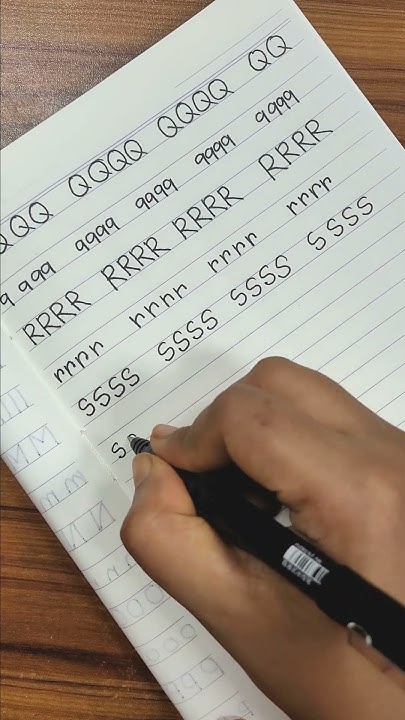 QQQ QQQQ QQQQ QQ
q qqq qqqq qqqq qqqq qqqq
RRRR RRRR RRRR RRRR
rrrr rrrr rrrr rrrr
SSSS SSSS SSSS SSSS
s s